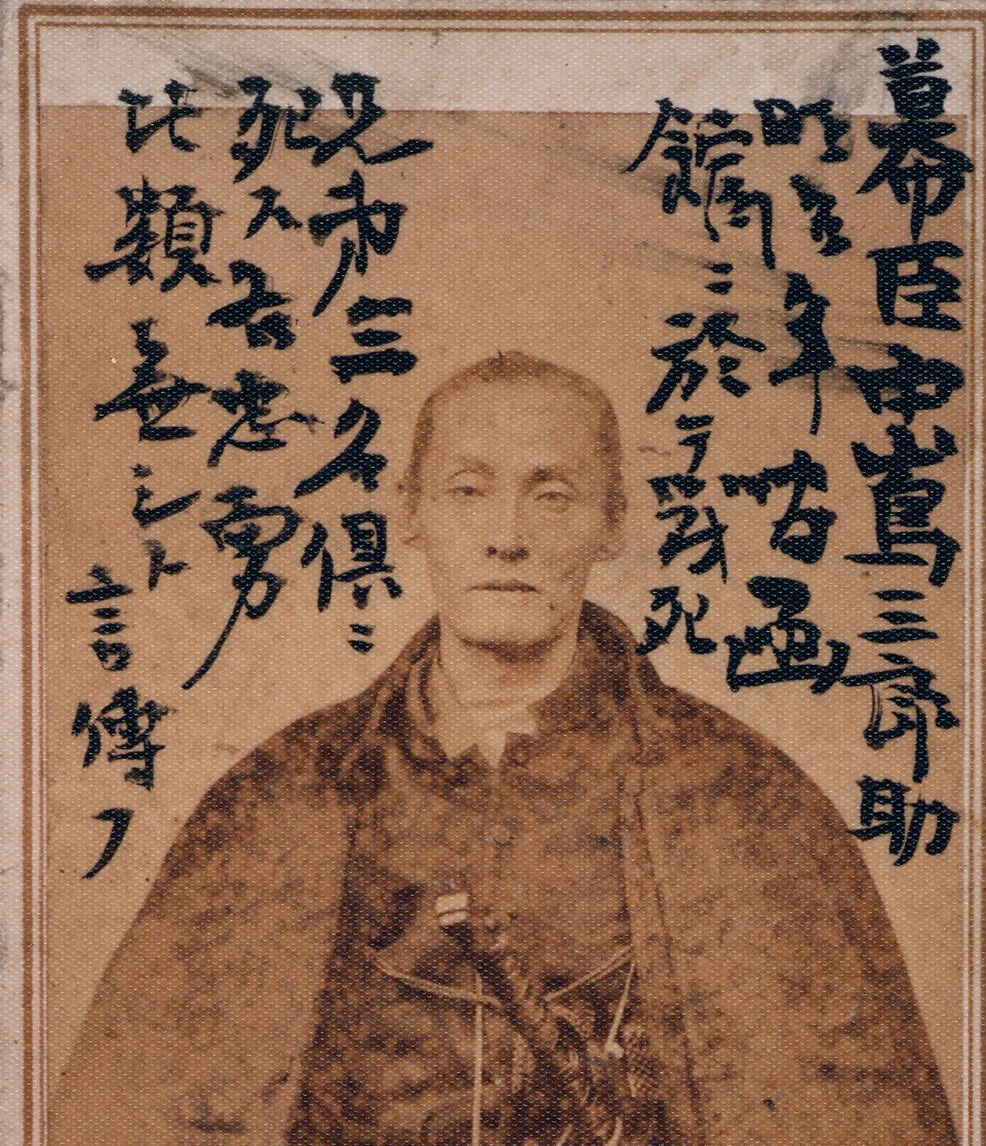 幕臣中嶌三郎助
明治二年於函
館ニ於テ戦死
兄弟三名倶ニ
死ス吾忠勇
比類無シト
言傳フ